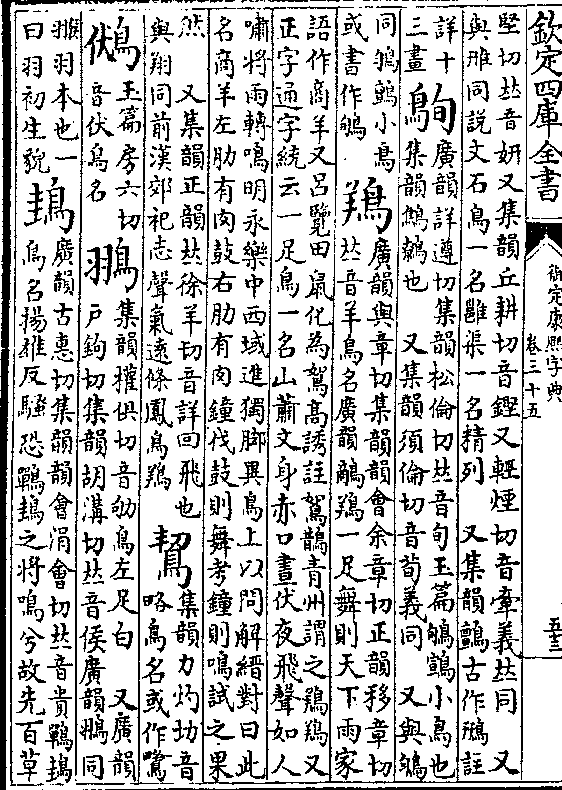 欽定四庫全書
御定康熙字典
卷三十五
五十三
堅切𠀤音妍又集韻丘耕切音鏗又輕煙切音牽義𠀤同 又
與雃同說文石鳥一名雝渠一名精列 又集韻鸇古作 註
詳十
三畫
廣韻詳遵切集韻松倫切𠀤音旬玉篇 鸇小鳥也
集韻鷦鷯也 又集韻須倫切音荀義同 又與
同 鸇小鳥
或書作
鴹
廣韻與章切集韻韻會余章切正韻移章切
𠀤音羊鳥名廣韻鸍鴹一足舞則天下雨家
語作商羊又呂覽田鼠化為鴽高誘註鴽鶕青州謂之 鴹又
正字通字統云一足鳥一名山蕭文身赤口晝伏夜飛聲如人
嘯將雨轉鳴明永樂中西域進獨脚異鳥上以問解縉對曰此
名商羊左肋有肉鼓右肋有肉鐘伐鼓則舞考鐘則鳴試之果
然 又集韻正韻𠀤徐羊切音詳回飛也
與翔同前漢郊祀志聲氣遠條鳳鳥鴹
集韻力灼切音
略鳥名或作
玉篇房六切
音伏鳥名
集韻權俱切音劬鳥左足白 又廣韻
戶鉤切集韻胡溝切𠀤音侯廣韻 同
羽本也一
曰羽初生貌
䳏
廣韻古惠切集韻韻會涓會切𠀤音貴鷤䳏
鳥名揚雄反騷恐鷤䳏之將鳴兮故先百草